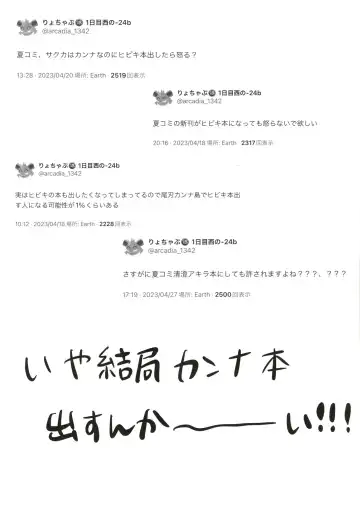 りょちゃぶ🔞 1日目西の-24b
@arcadia_1342
夏コミ、サクカはカンナなのにヒビキ本出したら怒る？
13:28 · 2023/04/20 場所: Earth · 2519回表示
りょちゃぶ🔞 1日目西の-24b
@arcadia_1342
夏コミの新刊がヒビキ本になっても怒らないで欲しい
20:16 · 2023/04/18 場所: Earth · 2317回表示
りょちゃぶ🔞 1日目西の-24b
@arcadia_1342
実はヒビキの本も出したくなってしまってるので尾刃カンナ島でヒビキ本出
す人になる可能性が1%くらいある
10:12 · 2023/04/18 場所: Earth · 2228回表示
りょちゃぶ🔞 1日目西の-24b
@arcadia_1342
さすがに夏コミ清澄アキラ本にしても許されますよね？？？、？？？
17:19 · 2023/04/27 場所: Earth · 2500回表示
いや結局カンナ本
出すんか〜――い!!!